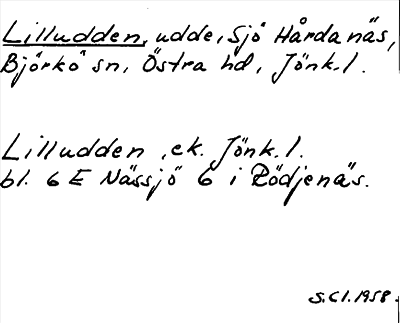 Lilludden, udde, Sjö Hårdanäs,
Björkö sn, Östra hd, Jönk.l.
Lilludden, ek. Jönk.l.
bl. 6 E Nässjö 6 i Rödjenäs.
S.Cl.1958.